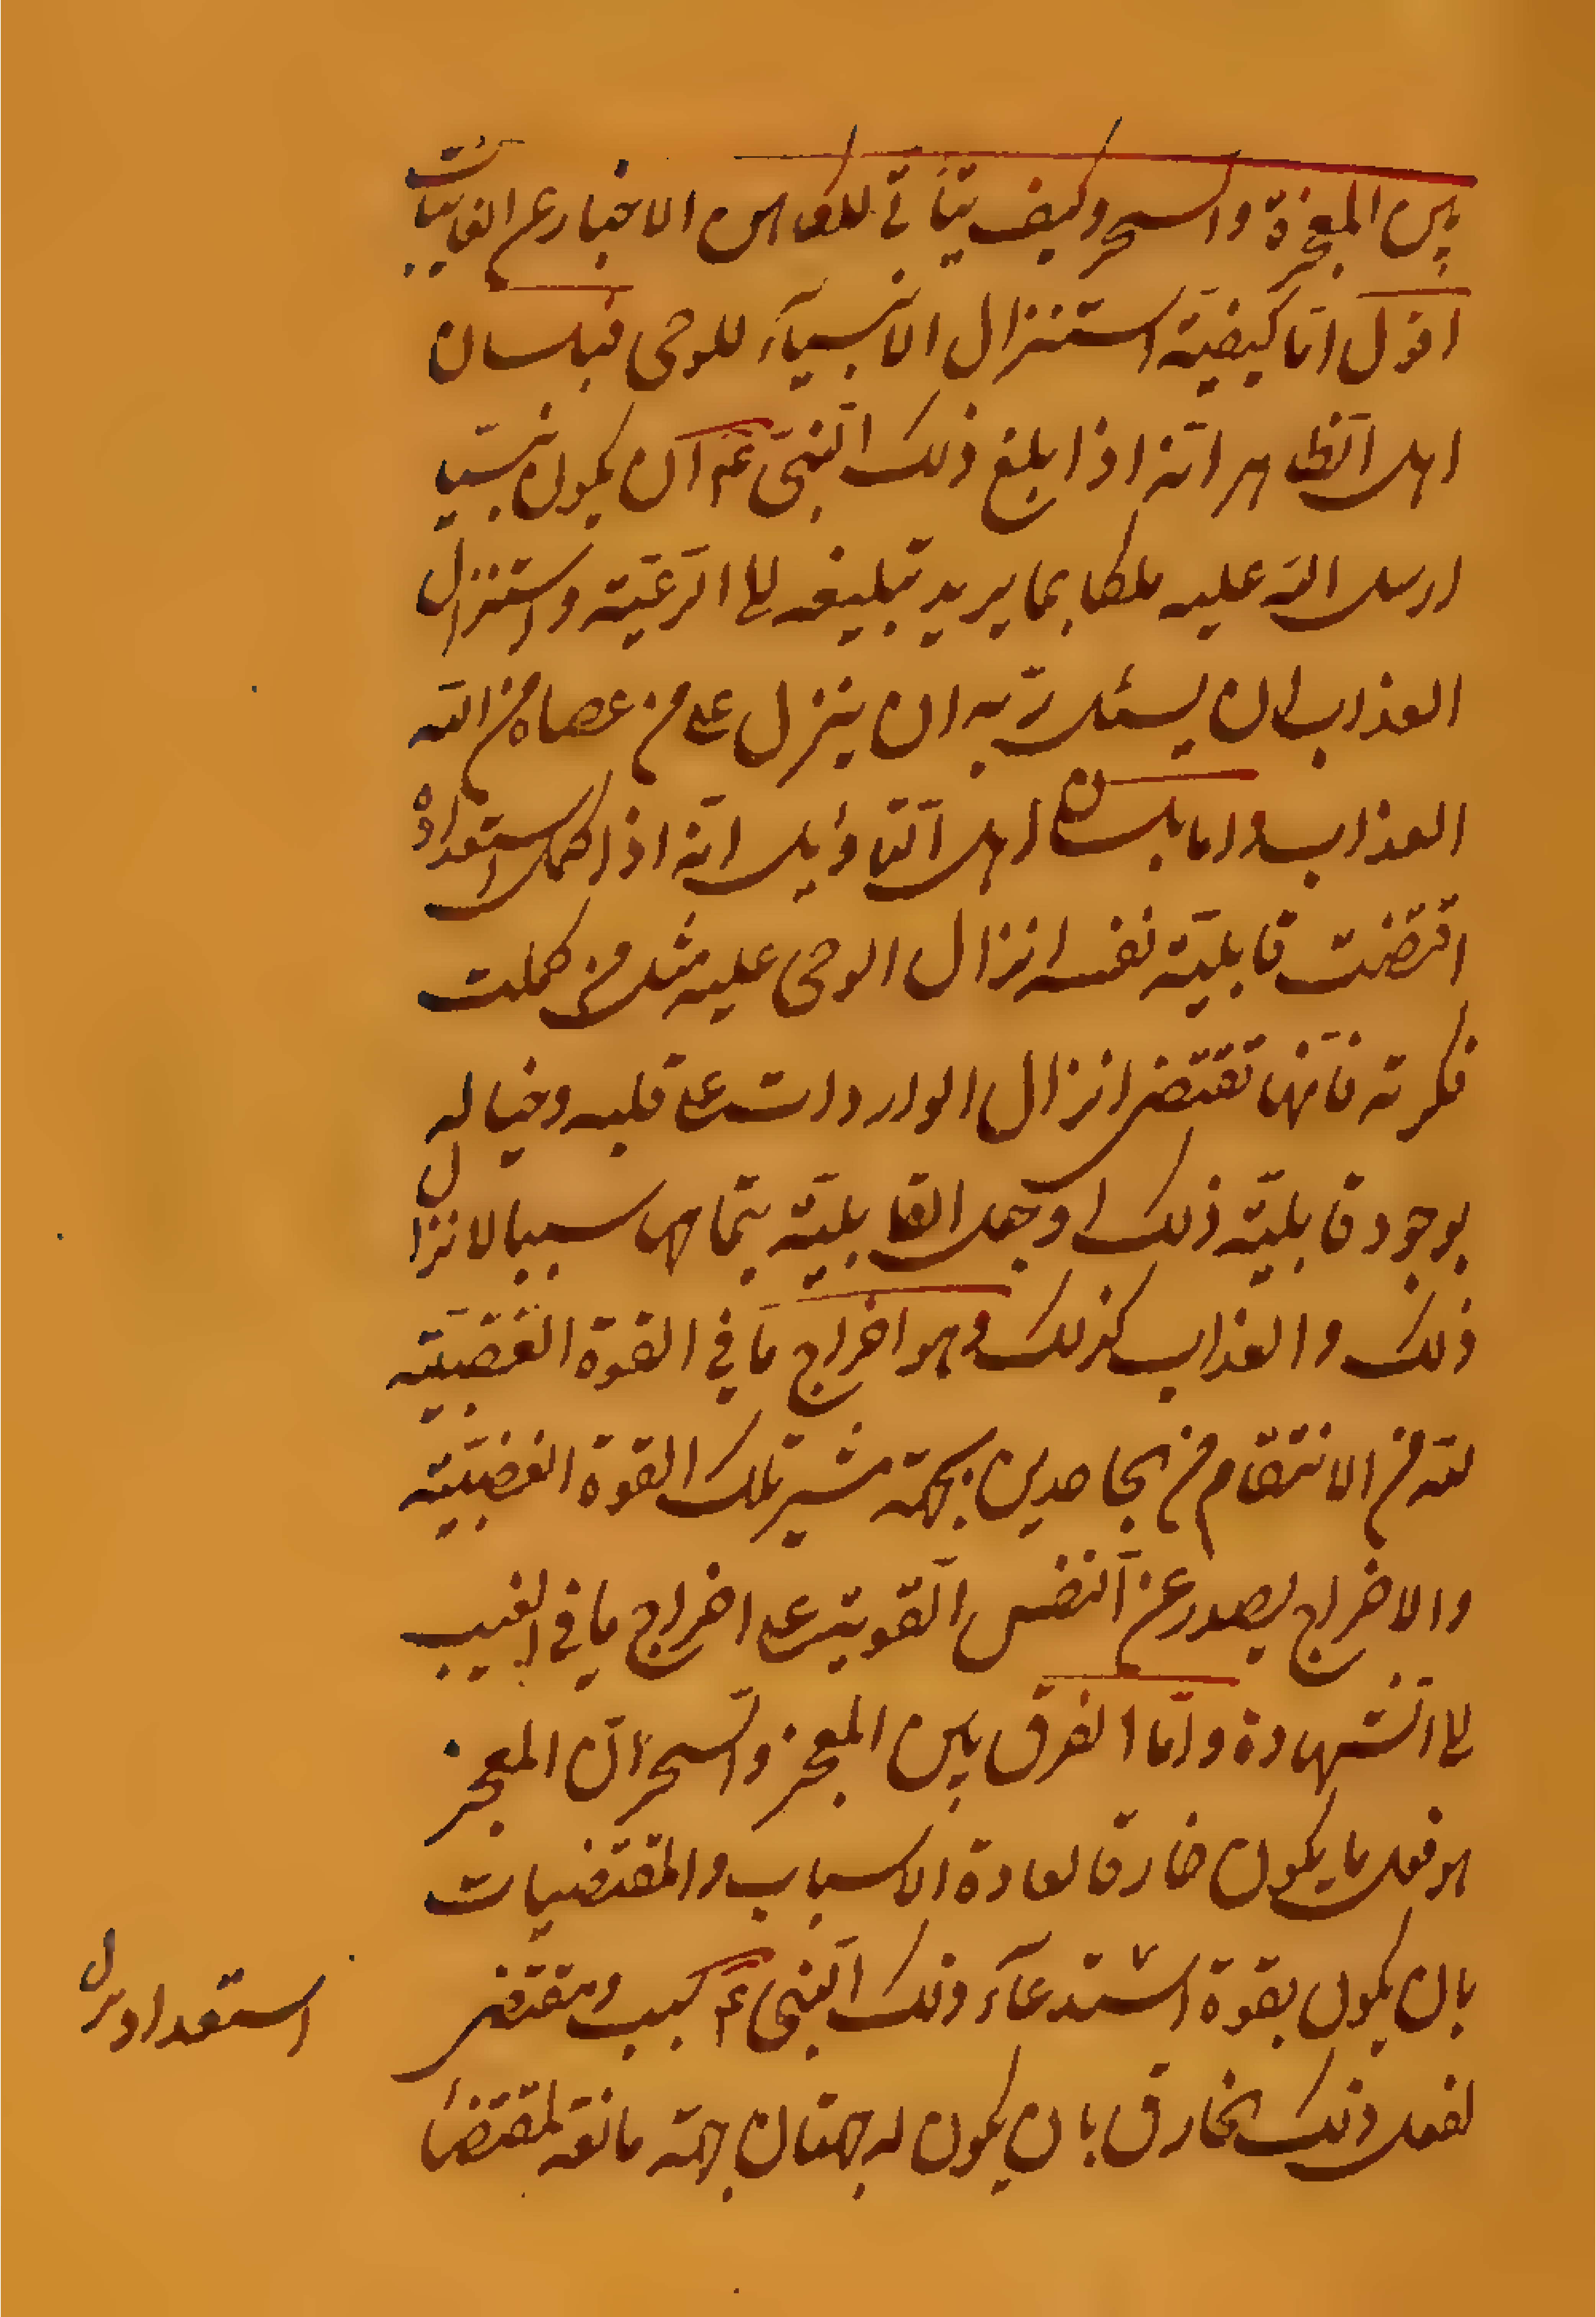 بين المعجزة والسحر وكيف يتأتى للكاهن الاخبار عن الغايبات
اقول اما كيفيّة استنزال الانبيآء للوحى فبلسان
اهل الظاهر انّه اذا بلغ ذلك النبىّ ع‍م ان يكون نبيّا
ارسل الله عليه ملكا بما يريد تبليغه الى الرعيّة واستنزال
العذاب ان يسئل ربّه ان ينزل على من عصاه من الله
العذاب واما بلسان اهل التاويل انّه اذا كمل استعداده
اقتضت قابليّة نفسه انزال الوحى عليه مثل من كملت
فكرته فانّها تقتضى انزال الواردات على قلبه وخياله
بوجود قابليّة ذلك اوجعل القابليّة بتمامها سببا لانزال
ذلك والعذاب كذلك وهو اخراج ما في القوة الغضبيّة
لله من الانتقام من الجاحدين بجهة مثير تلك القوة الغضبيّة
والاخراج يصدر عن النفس القوية على اخراج ما في الغيب
الى الشهادة وامّا الفرق بين المعجز والسحر انّ المعجز
هو فعل ما يكون خارقا لعادة الاسباب والمقتضيات
بان يكون بقوة استدعآء ذلك النبى ع‍م كسبب ومقتضى
لفعل ذلك الخارق بان يكون له جهتان جهة مانعة لمقتضا
استعداد